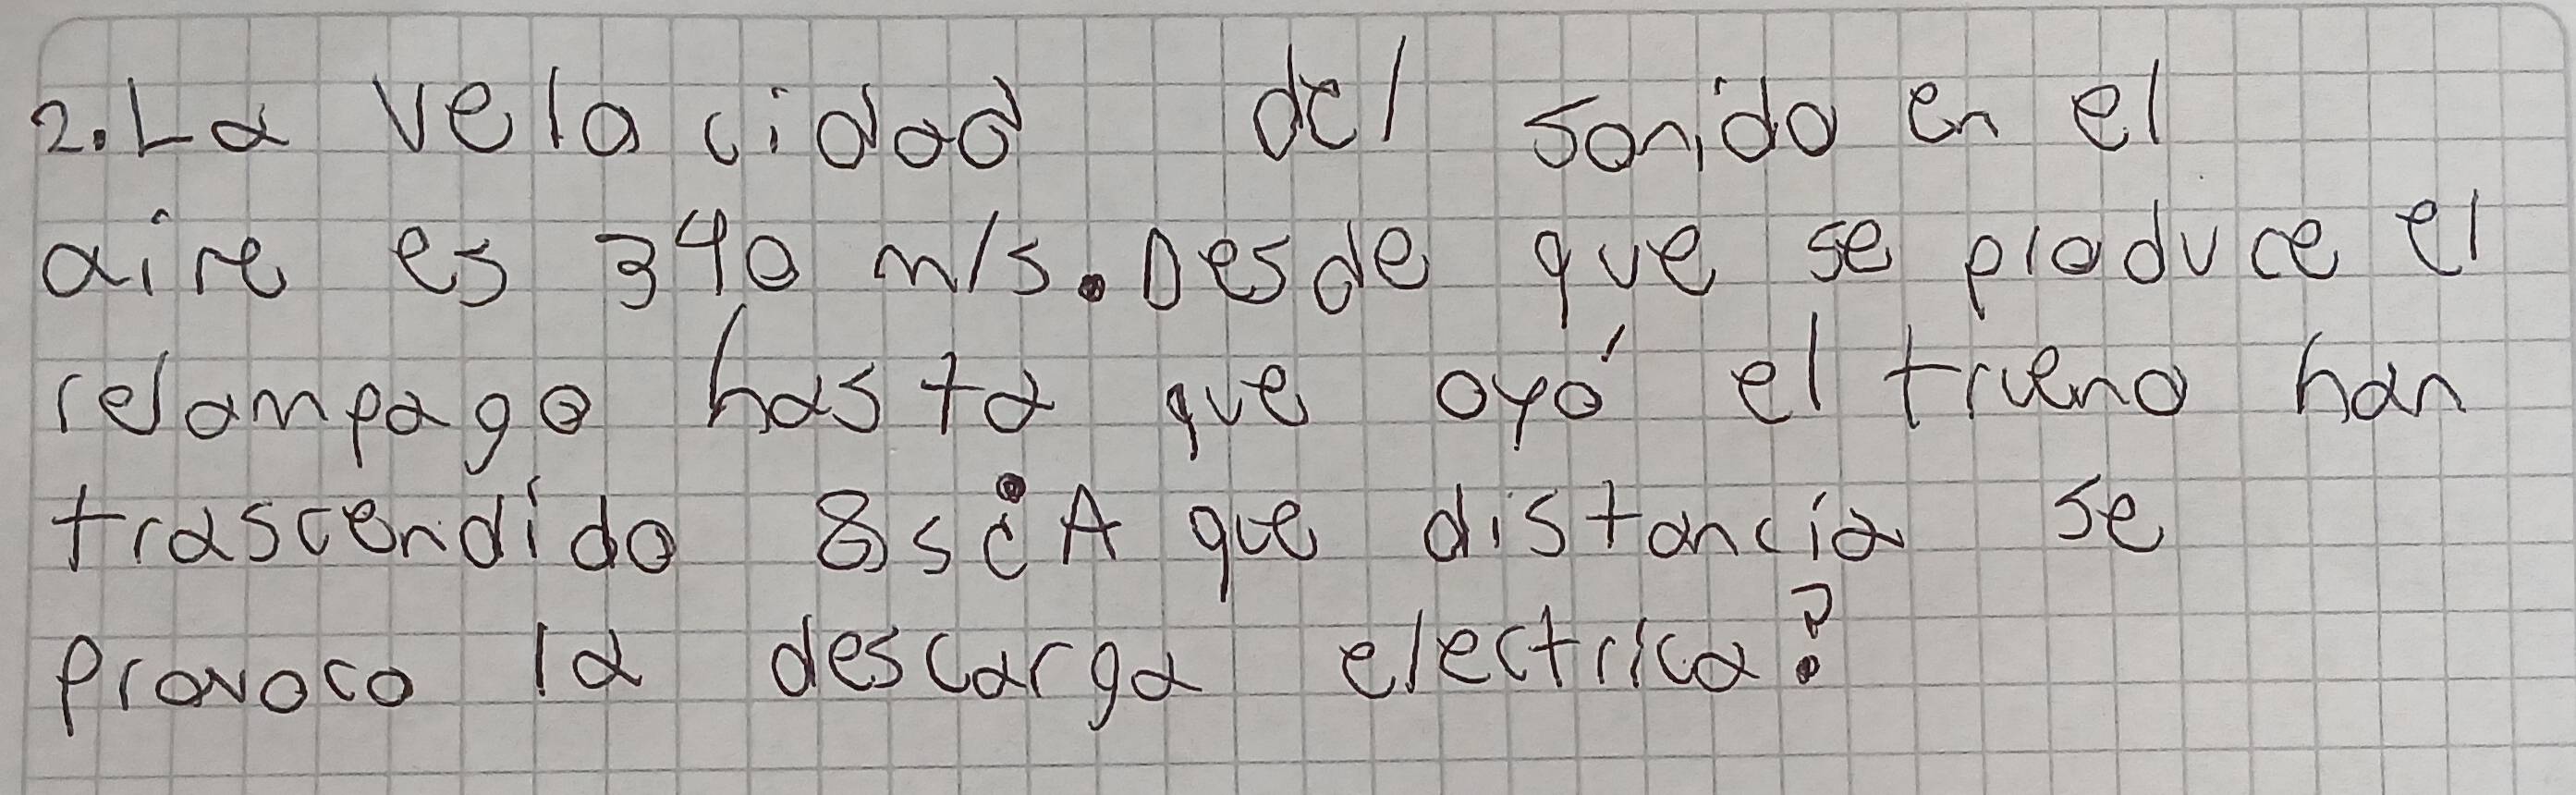 2. La velocidad del sonido en el
aire es 340 m/s. Desde que se produce el
relampago hasta que oyó el trueno han
trascendido 8s ¿A que distancia se
provoco la descarga electrica?